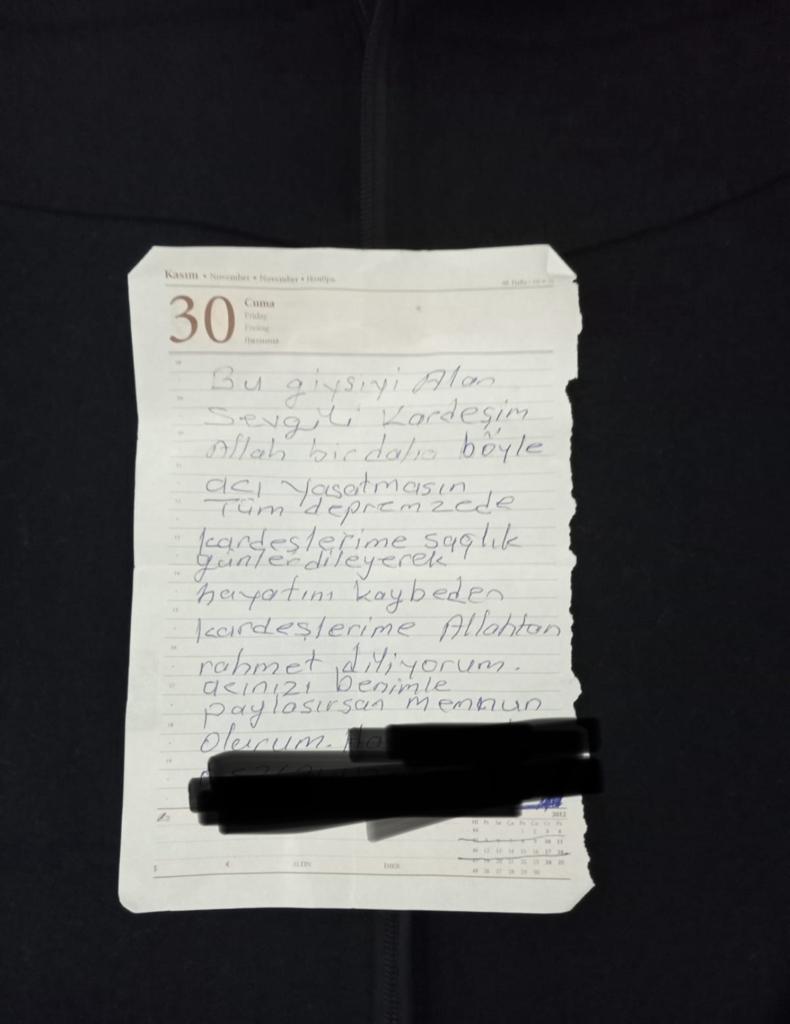 Kasım • November • November • Ноябрь
30
Cuma
Friday
Freitag
Bu giysiyi Alan
Sevgili Kardeşim
Allah birdaha böyle
acı yaşatmasın
Tüm depremzede
kardeşlerime sağlık
günler dileyerek
hayatını kaybeden
kardeşlerime Allahtan
rahmet diliyorum.
acınızı benimle
paylaşırsan memnun
olurum.
2012
$ € ALTIN